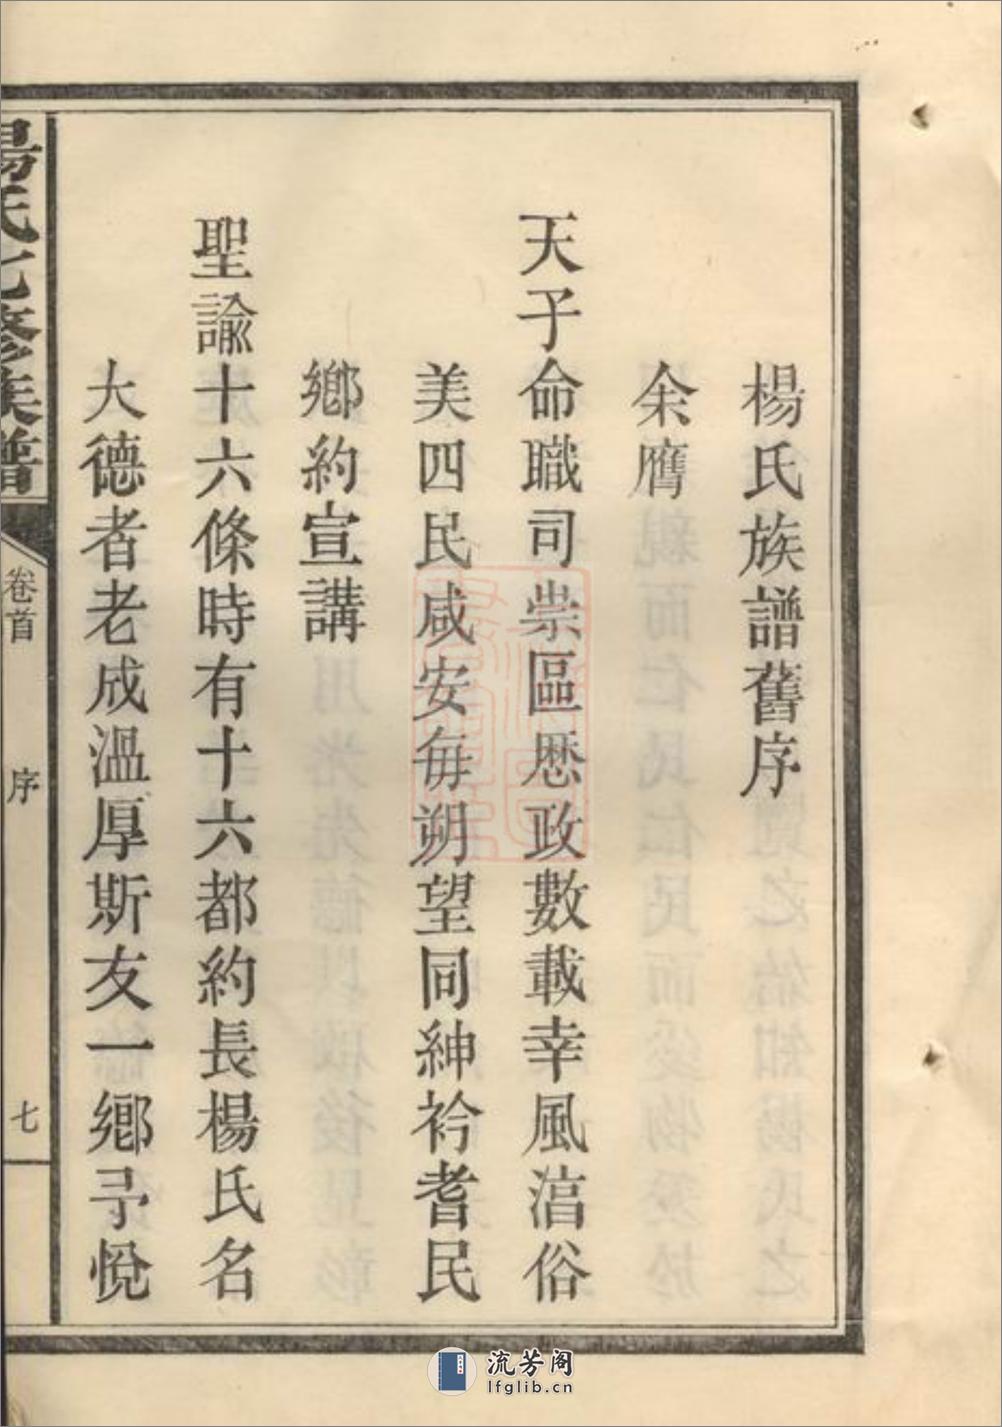 楊氏族譜舊序
余膺
天子命職司崇區厯政數載幸風湻俗
美四民咸安每朔望同紳衿耆民
鄉約宣講
聖諭十六條時有十六都約長楊氏名
大德者老成溫厚斯友一鄉予悅
楊氏七修族譜
卷首
序
七
流芳阁
lfglib.cn